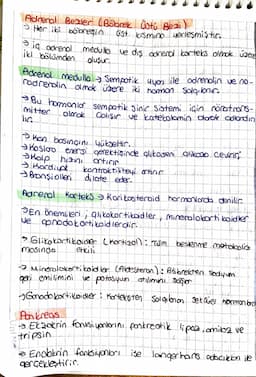 Adrenal Bezler (Böbrek Üstü Bezi)
→ Her iki böbreğin üst kısmına yerleşmiştir.
→ İç adrenal medulla ve dış adrenal korteks olmak üzere
iki bölümden oluşur.
Adrenal medulla → Sempatik uyarı ile adrenalin ve no-
radrenalin olmak üzere iki hormon salgılanır.
→ Bu hormonlar sempatik sinir sistemi için nörotrans-
mitter olarak çalışır ve katekolamin olarak adlandırı
lır.
→ Kan basıncını yükseltir.
→ Kaslara enerji gerektiğinde glikojen glikoza çevrilir
→ Kalp hızını artırır
→ Kardiyak kontraktiliteyi artırır
→ Bronşiolleri dilate eder.
Adrenal Korteks → Kortikosteroid hormonlarda denilir.
→ En önemlileri, glikokortikoidler, mineralokortikoidler
ve gonadokortikoidlerdir.
→ Glikokortikoidler (Kortizol): Tüm besinlerin metaboliz
masında etkili
→ Mineralokortikoidler (Aldosteron): Böbrekten sodyum
geri emilimini ve potasyum atılımını sağlar
→ Gonadokortikoidler: Korteksten salgılanan seksüel hormonlardır
Pankreas
→ Ekzokrin fonksiyonlarını pankreatik lipaz, amilaz ve
tripsin
→ Endokrin fonksiyonları ise langerhans adacıkları ile
gerçekleştirir.